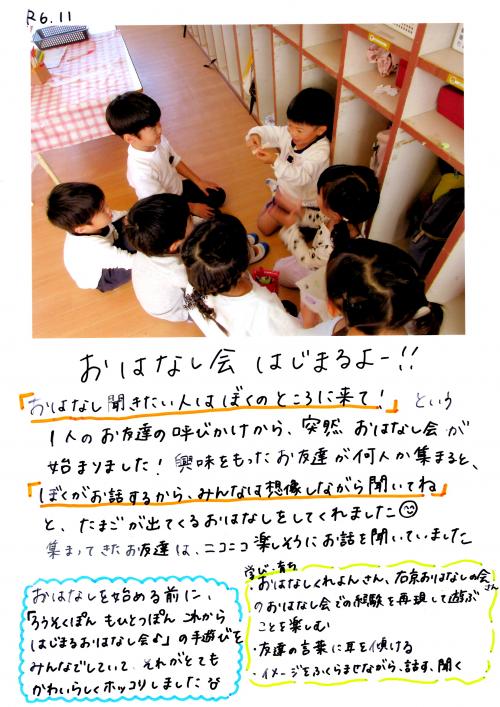 R6.11
おはなし会 はじまるよー!!
「おはなし聞きたい人はぼくのところに来て!」という
1人のお友達の呼びかけから、突然 おはなし会が
始まりました! 興味をもったお友達が何人か集まると、
「ぼくがお話するから、みんなは想像しながら聞いてね」
と、たまごが出てくるおはなしをしてくれました
集まってきたお友達は、ニコニコ楽しそうにお話を聞いていました
おはなしを始める前に、
「ろうそくぽん もひとつぽん これから
はじまるおはなし会♪」の手遊びを
みんなでしていて、それがとても
かわいらしくホッコリしました
学び・育ち
・おはなしくれよんさん、右京おはなしの会さん
のおはなし会での経験を再現して遊ぶ
ことを楽しむ
・友達の言葉に耳を傾ける
・イメージをふくらませながら、話す、聞く